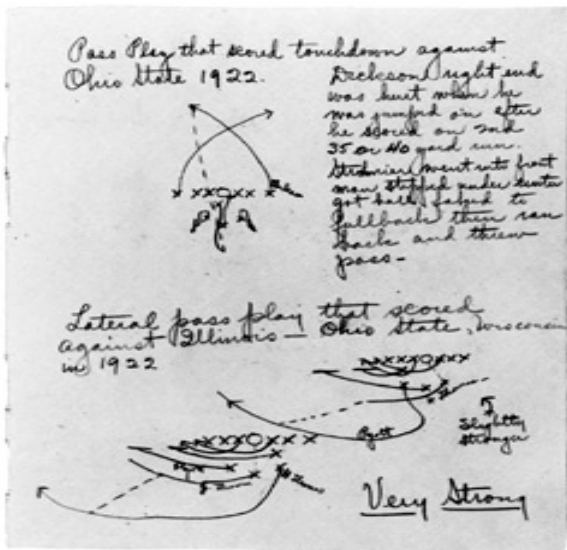 Pass Play that scored touchdown against
Ohio State 1922.
Dickson right end
was hurt when he
was jumped on after
he scored on 2nd
35 or 40 yard run.
went into front
man stepped under center
got ball faked to
fullback then ran
back and threw
pass -
Lateral pass play that scored
against Illinois — Ohio State, Wisconsin
in 1922
Slightly
stronger
Very Strong